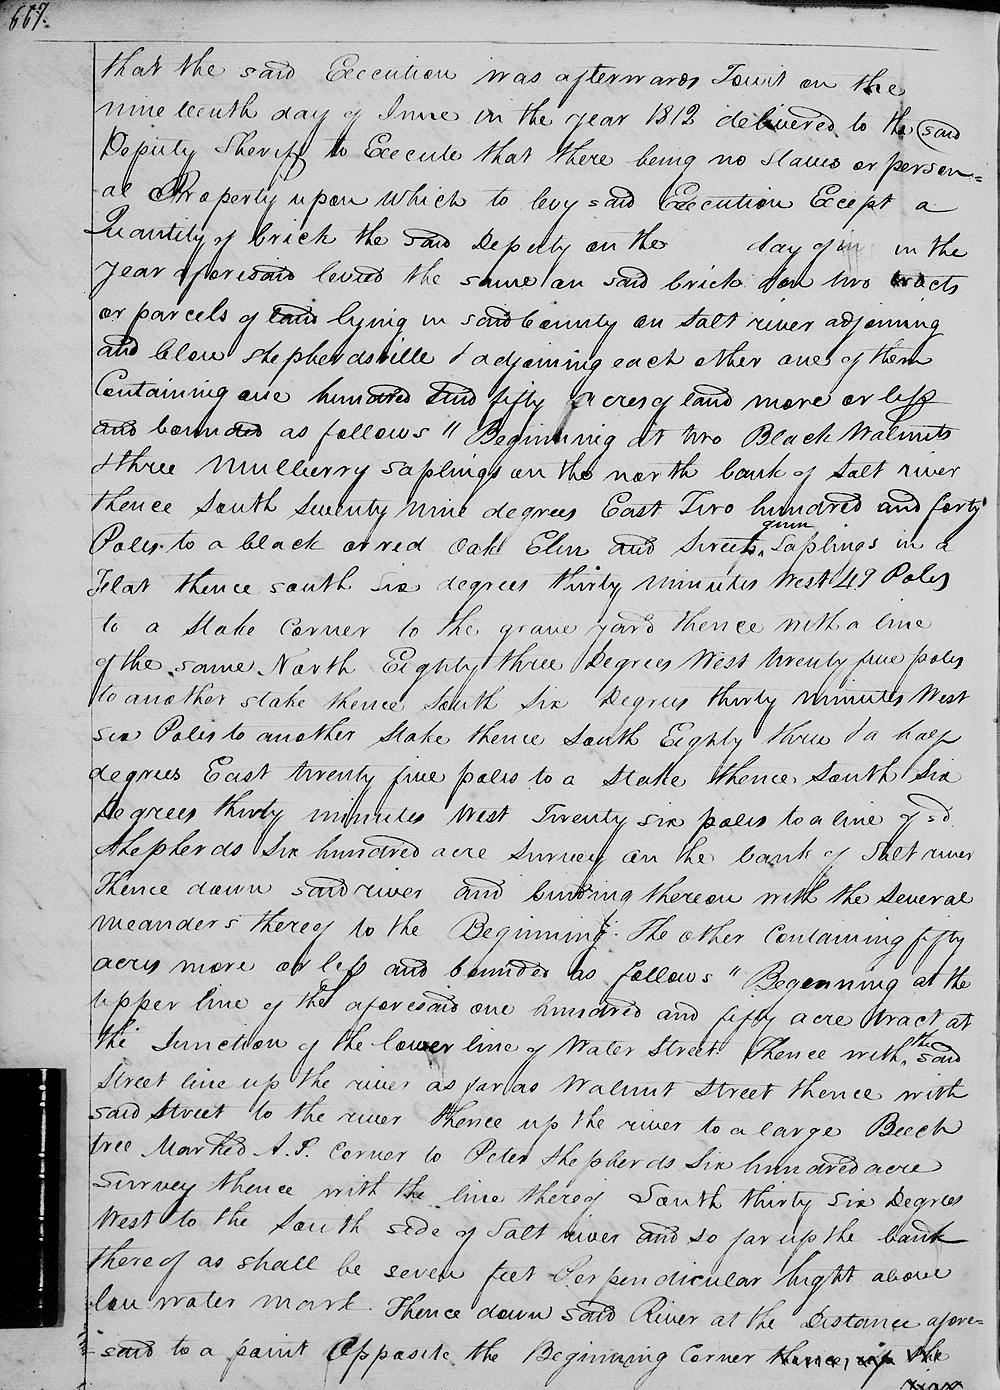 667.
that the said Execution was afterwards Towit on the
nineteenth day of June in the year 1812 delivered to the said
Deputy Sheriff to Execute that there being no slaves or person=
al Property upon which to levy said Execution Except a
Quantity of brick the said Deputy on the day of in the
year aforesaid levied the same on said brick & on two tracts
or parcels of land lying in said County on Salt river adjoining
and blow Shepherdsville & adjoining each other one of them
Containing one hundred and fifty Acres of land more or less
and bounded as follows " Beginning at two Black Walnuts
& three Mulberry saplings on the north bank of Salt river
thence South Seventy nine degrees East Two hundred and forty
Poles to a black or red Oak Elm and Sweet gum Saplings in a
Flat thence south six degrees thirty minutes West 49 Poles
to a Stake Corner to the grave yard thence with a line
of the same North Eighty three Degrees West twenty five poles
to another stake thence South Six Degrees thirty minutes West
six Poles to another Stake thence South Eighty three & a half
degrees East twenty five poles to a Stake thence South Six
Degrees thirty minutes West Twenty six poles to a line of sd
Shepherds Six hundred acre Survey on the bank of Salt river
Thence down said river and binding thereon with the several
meanders thereof to the Beginning. The other Containing fifty
acres more or less and bounded as follows " Begenning at the
upper line of the aforesaid one hundred and fifty acre tract at
the Junction of the lower line of Water Street Thence with the said
Street line up the river as far as Walnut Street thence with
said Street to the river thence up the river to a large Beech
tree Marked A.S. Corner to Peter Shepherds Six hundred acre
Survey thence with the line thereof South thirty six Degrees
West to the South side of Salt river and so far up the bank
thereof as shall be seven feet Perpendicular hight above
low water mark. Thence down said River at the Distance afore=
said to a point Opposite the Beginning Corner thence, up the
river